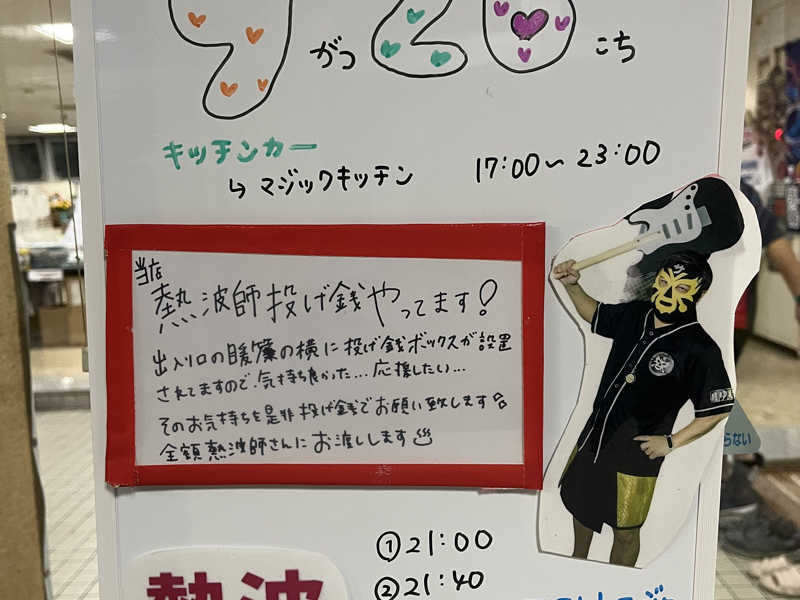 9がつ20にち
キッチンカー
↳マジックキッチン 17:00~23:00
当店
熱波師投げ銭やってます!
出入り口の暖簾の横に投げ銭ボックスが設置
されてますので、気持ち良かった…応援したい…
そのお気持ちを是非投げ銭でお願い致します
全額熱波師さんにお渡しします♨
らない
①21:00
②21:40
熱波